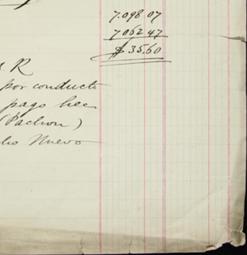 7.098.07
7.062.47
$ 35.60
R
por conducto
pago hec
(Pachon)
Nuevo